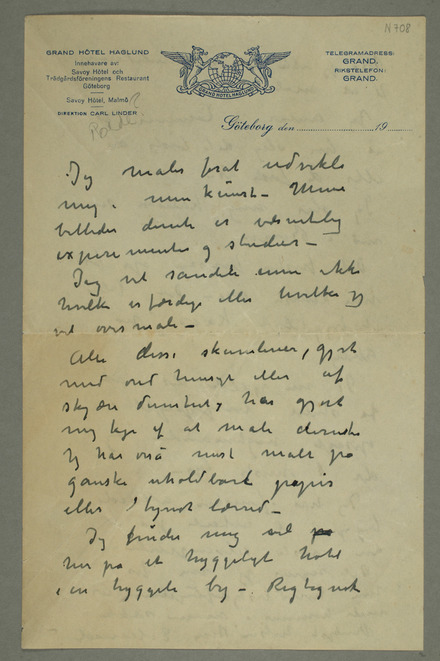 N 708
GRAND HÔTEL HAGLUND
Innehavare av:
Savoy Hôtel och
Trädgårdsföreningens Restaurant
Göteborg
Savoy Hôtel, Malmö
DIREKTION CARL LINDER
GRAND HOTEL HAGLUND
TELEGRAMADRESS:
GRAND.
RIKSTELEFON:
GRAND.
Göteborg den 19
Jeg maler forat udvikle
mig i min kunst – Mine
billeder derute er væsentlig
experimenter og studier –
Jeg vil sandelig ikke
hvilke er færdige eller hvilke jeg
vil overmale –
Alle disse skandaler, gjort
med ond hensigt eller af
skjær dumhet, har gjort
mig kje af at male
Jg har også mest malt på
ganske uholdbart papir
eller tyndt lærred –
Jeg finder mig vel
her på et hyggeligt hotel
i en hyggelig by –